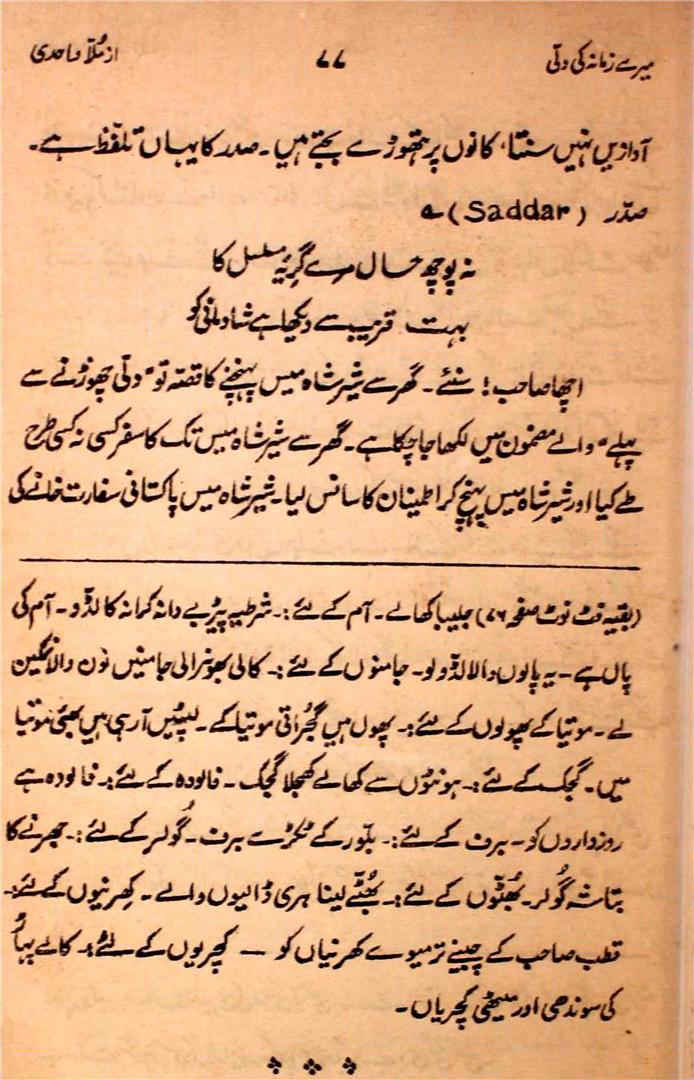 میرے زمانہ کی دلی ۷۷ از مُلّا واحدی
آوازیں نہیں سنتا، کانوں پر ہتھوڑے بجتے ہیں۔ صدر کا یہاں تلفّظ ہے۔
صدّر (Saddar) ؎
نہ پوچھ حال مرے گریۂ مسلسل کا
بہت قریب سے دیکھا ہے شادمانی کو
اچھا صاحب! سنئے۔ گھر سے شیر شاہ میس پہنچنے کا قصّہ تو "دلّی چھوڑنے سے
پہلے" والے مضمون میں لکھا جا چکا ہے۔ گھر سے شیر شاہ میس تک کا سفر کسی نہ کسی طرح
طے کیا اور شیر شاہ میس پہنچ کر اطمینان کا سانس لیا۔ شیر شاہ میس پاکستانی سفارت خانے کی
(بقیہ فٹ نوٹ صفحہ ۷۶) جلیبا کھالے۔ آم کے لئے:۔ شرطیہ پیڑ بے دانہ کرانہ کا لڈّو۔ آم کی
پال ہے۔ یہ پالوں والا لڈّو لو۔ جامنوں کے لئے:۔ کالی بھونرالی جامنیں نون والا نمکین
لے۔ موتیا کے پھولوں کے لئے:۔ پھول ہیں گجُراتی موتیا کے۔ لپٹیں آرہی ہیں بھئی موتیا
میں۔ گجک کے لئے:۔ ہونٹوں سے کھالے کھجلا گجک۔ فالودہ کے لئے:۔ فالودہ ہے
روزداروں کو۔ برف کے لئے:۔ بلّور کے ٹکڑے برف۔ گُولر کے لئے:۔ جھرنے کا
بتاشہ گُولر۔ بھُٹّوں کے لئے:۔ بھُٹّے لینا ہری ڈالیوں والے۔ کھرنیوں کے لئے:۔
قطب صاحب کے چینے تر میوے کھرنیاں کو — کچریوں کے لئے:۔ کالے پہاڑ
کی سوندھی اور میٹھی کچریاں۔